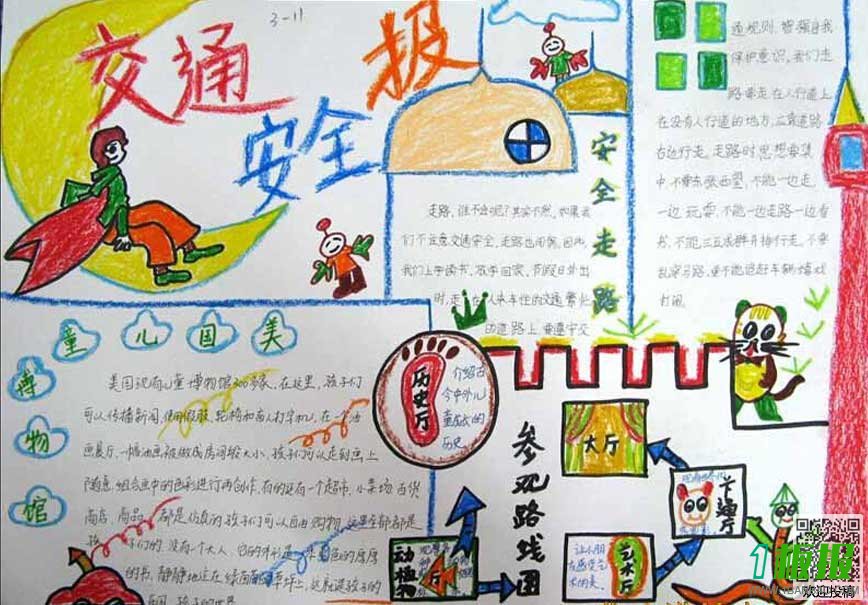 3-11
交通
安全
报
安全走路
走路,谁不会呢?其实不然,如果我
们不注意交通安全,走路也闯祸,因此,
我们上学读书,放学回家,节假日外出
时,走在人来车往的交通繁忙
的道路上,要遵守交
通规则,增强自我
保护意识,我们走
路要走在人行道上
在没有人行道的地方,应靠道路
右边行走,走路时思想要集
中,不要东张西望,不能一边走
一边玩耍,不能一边走路一边看
书,不能三五成群并排行走,不要
乱穿马路,更不能追赶车辆嬉戏
打闹.
美国儿童
博物馆
美国现有儿童博物馆300多家.在这里,孩子们
可以传播新闻,使用假肢、轮椅和盲人打字机,在一个油
画展厅,一幅油画被做成房间较大小,孩子们可以走到画上
随意组合画中的色彩进行再创作,有的还有一个超市,小菜场,百货
商店,商品都是仿真的孩子们可以自由购物,这里全部都是
孩子们的,没有一个大人,它的外形是一本彩色的厚厚
的书,静静地立在绿茵草坪上,这就是孩子的
乐园,孩子的世界.
历史厅
介绍古
今中外儿
童成长的
历史
参观路线图
大厅
卡通厅
艺术厅
动植物厅
欢迎投稿